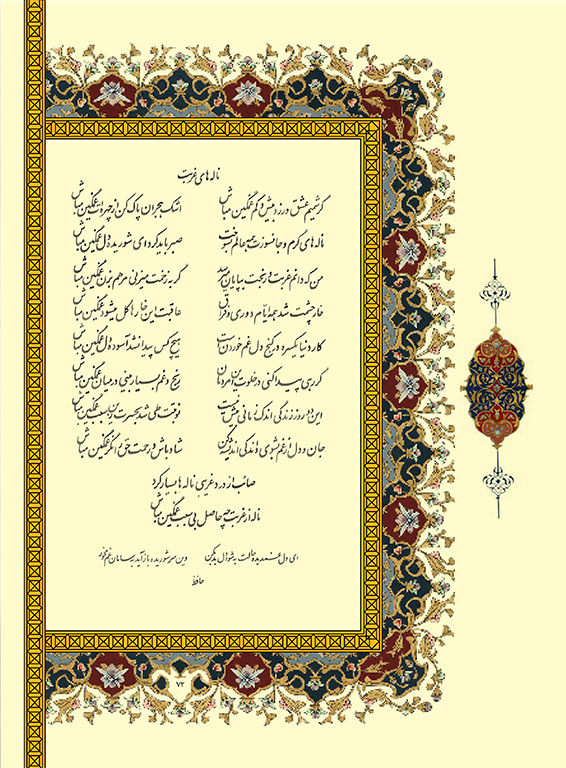 ناله های غربت
گر شیم عشق ورزد بیش و کم غمگین مباش اشک هجران پاک کن از چهره ات غمگین مباش
ناله های گرم و جانسوزت همه عالم بسوخت صبر باید کرد ای شوریده دل غمگین مباش
من که دانم غربت و رنجت به پایان میرسد گر به زخمت میزنی مرهم بزن غمگین مباش
خار چشمت شد همه ایام دوری و فراق عاقبت این خار را گل میشود غمگین مباش
کار دنیا یکسره در کنج دل غم خوردن است هیچ کس پیدا نشد آسوده دل غمگین مباش
گر رسی پیدا کنی در خلوت رنج و غم بسیار بینی در جهان غمگین مباش
این دو روز زندگی اندک زمانی بیش نیست غمگین مباش
جان و دل از غم بشوی با زندگی اندیشه کن شاد باش و رحمت حق را نگر غمگین مباش
صائب از درد غریبی ناله ها بسیار کرد
ناله از غربت چه حاصل بی سبب غمگین مباش
ای دل غمدیده حالت به شود دل بد مکن وین سر شوریده باز آید به سامان غم مخور
حافظ
۷۲